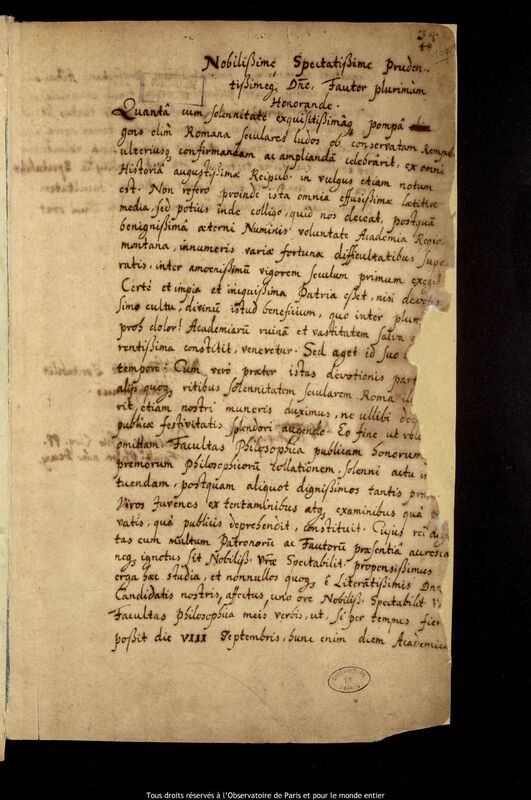 34
Nobilißime Spectatißime Pruden-
tißimeq; Dñe, Fautor plurimùm
Honorande.
Quantâ cum solennitate exquisitißimâq; pompâ
gens olim Romana seculares ludos ob conservatam Rempub
ulteriusq; confirmandam ac ampliandā celebrârit, ex omni
Historiâ augustißimæ Reipub. in vulgus etiam notum
est. Non refero proinde ista omnia effusißimæ lætitiæ
media, sed potius inde colligo, quid nos deceat, postquā
benignißimâ æterni Numinis voluntate Academia Regio
montana, innumeris variæ fortunæ difficultatibus supe
ratis, inter amœnißimū vigorem seculum primum exegit
Certè et impia et iniquissima Patria esset, nisi devotis
simo cultu, divinū istud beneficium, quo inter plur
proh dolor! Academiarū ruinā et vastitatem salva
rentißima constitit, veneretur. Sed aget id suo
tempore. Cum verò præter istas devotionis part
alijs quoq; ritibus solennitatem secularem Roma
rit, etiam nostri muneris duximus, ne ullibi
publicæ festivitatis splendori augendo. Eo fine ut
omittam, Facultas Philosophica publicam honorum
premorum Philosophicorū collationem, solenni actu
tuendam, postquam aliquot dignißimos tantis
Viros Juvenes ex tentaminibus atq; examinibus quà
vatis, quà publicis deprehendit, constituit. Cujus rei
tas cum multum Patronorū ac Fautorū præsentiâ
neq; ignotus sit Nobiliß. Vræ Spectabilit. propensißimus
erga hæc studia, et nonnullos quoq; è Literatißimis Dn
Candidatis nostris, affectus, uno ore Nobiliß. Spectabilit
Facultas Philosophica meis verbis, ut, si per tempus fier
poßit die VIII Septembris, hunc enim diem Academic
OBSERVATOIRE
DE
PARIS
Tous droits réservés à l'Observatoire de Paris et pour le monde entier